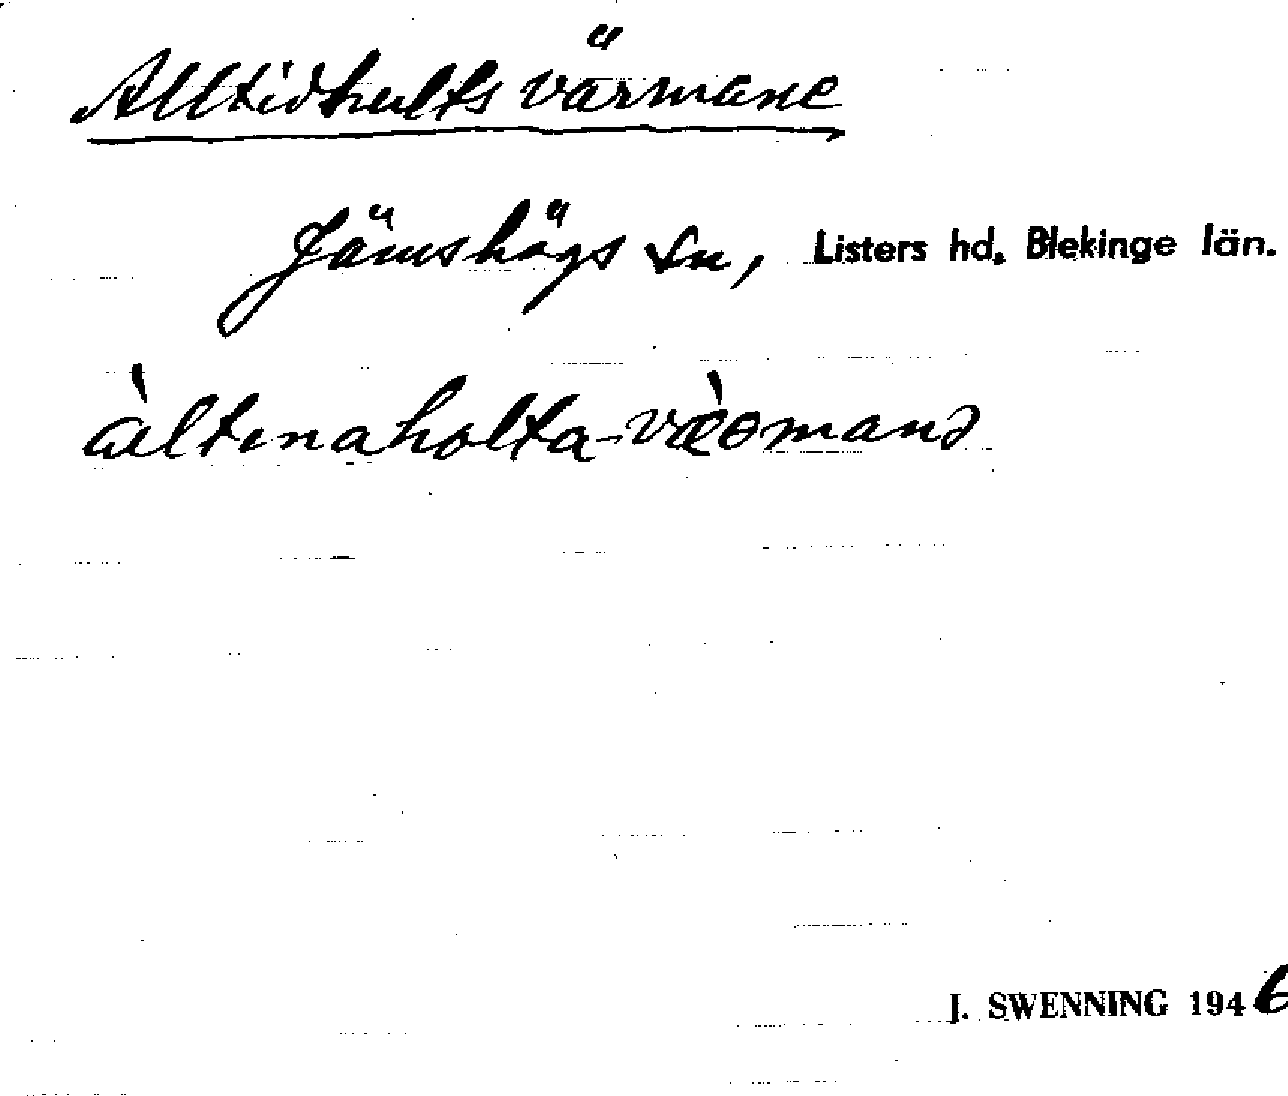 Alltidhults värmane
Jämshögs sn, Listers hd, Blekinge län.
àltɩnaholta-væ̀ɵmanə
J. SWENNING 1946